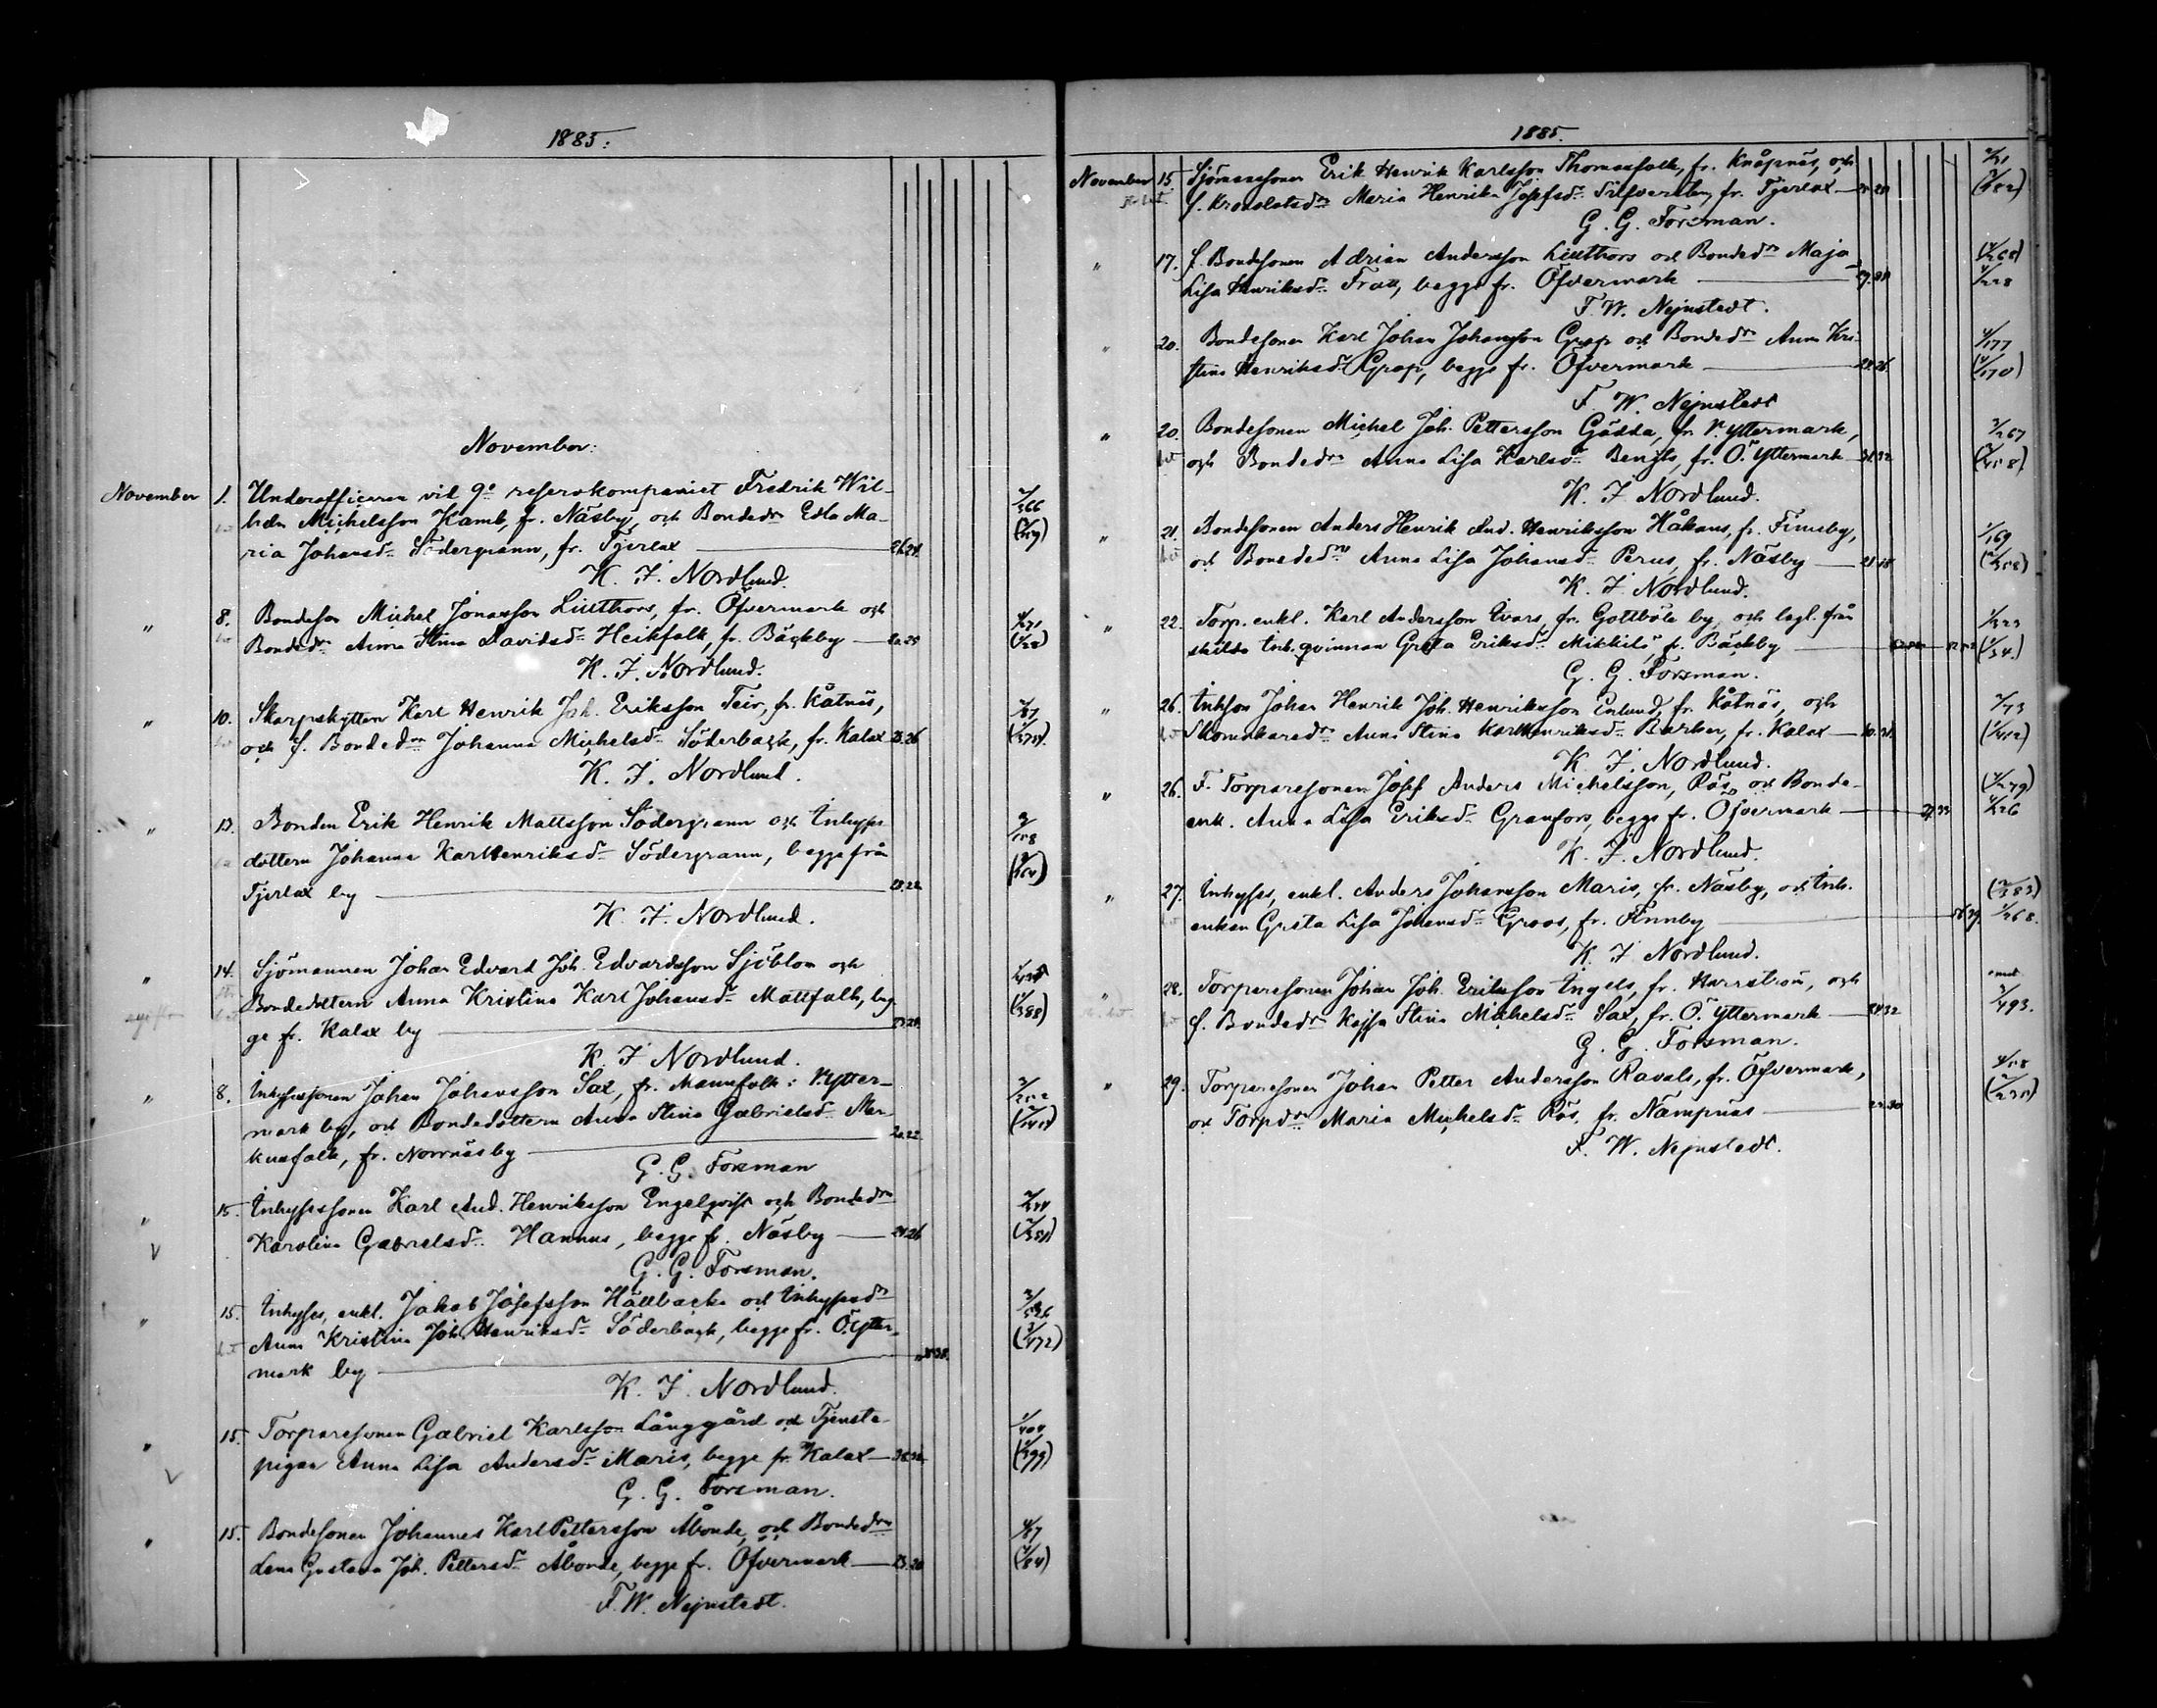 1885.
November:
November 1. Underofficeren vid 9e reservkompaniet Fredrik Wil-
helm Michelsson Kamb, fr. Näsby, och Bondedrn Edla Ma-
ria Johansdr Södergrann, fr. Tjerlax 26.24.
K. J. Nordlund.
" 8. Bondeson Michel Jonasson Liuthors, fr. Öfvermark och
Bondedrn Anna Stina Davidsdr Heikfolk, fr. Bäckby
K. J. Nordlund.
" 10. Skarpskytten Karl Henrik Joh. Eriksson Teir, fr. Kåtnäs,
och f. Bondedrn Johanna Michelsdr Söderback, fr. Kalax 23.26
K. J. Nordlund.
" 13. Bonden Erik Henrik Mattsson Södergrann och Inhyses
dottern Johanna Karl Henriksdr Södergrann, begge från
Tjerlax by
K. J. Nordlund.
" 14. Sjömannen Johan Edvard Joh. Edvardsson Sjöblom och
Bondedottern Anna Kristina Karl Johansdr Mattfolk, beg-
ge fr. Kalax by
K. J. Nordlund.
" 8. Inhysessonen Johan Johansson Sax, fr. Mannfolk i N. Ytter-
mark by, och Bondedottern Anna Stina Gabrielsdr Mar-
kusfolk, fr. Norrnäsby 20.22.
G. G. Forsman
" 15. Inhysessonen Karl And. Henriksson Engelqvist och Bondedrn
Karolina Gabrielsdr Hannus, begge fr. Näsby 24.26
G. G. Forsman.
" 15. Inhyses, enkl. Jakob Josefsson Hällback och Inhysesdrn
Anna Kristina Joh. Henriksdr Söderback, begge fr. Ö. Ytter-
mark by
K. J. Nordlund.
" 15. Torparesonen Gabriel Karlsson Långgård och Tjenste-
pigan Anna Lisa Andersdr Maris, begge fr. Kalax
G. G. Forsman.
" 15. Bondesonen Johannes Karl Pettersson Åbonde, och Bondedrn
Lena Gustava Joh. Pettersdr Åbonde, begge fr. Öfvermark 23.20
F. W. Nejnstedt.
1885.
November 15. Sjömanssonen Erik Henrik Karlsson Thomasfolk, fr. Knåpnäs, och
f. Kronolotsdrn Maria Henrika Josefsdr Silfversten, fr. Tjerlax
G. G. Forsman.
" 17. f. Bondesonen Adrian Andersson Liuthors och Bondedrn Maja
Lisa Henriksdr Frau, begge fr. Öfvermark
F. W. Nejnstedt.
" 20. Bondesonen Karl Johan Johansson Grop och Bondedrn Anna Kri-
stina Henriksdr Grop, begge fr. Öfvermark
F. W. Nejnstedt
" 20. Bondesonen Michel Joh. Pettersson Gädda, fr. N. Yttermark,
och Bondedrn Anna Lisa Karlsdr Bengts, fr. Ö. Yttermark
K. J. Nordlund.
" 21. Bondesonen Anders Henrik And. Henriksson Håkans, fr. Finnby,
och Bondedrn Anna Lisa Johansdr Perus, fr. Näsby 21.18
K. J. Nordlund.
" 22. Torp. enkl. Karl Andersson Ivars, fr. Gottböle by, och lagl. från
skilda Inh. qvinnan Greta Eriksdr Mikkils, fr. Bäckby
G. G. Forsman.
" 26. Inhson Johan Henrik Joh. Henriksson Enlund, fr. Kåtnäs, och
Skomakaredrn Anna Stina Karl Henriksdr Barker, fr. Kalax
K. J. Nordlund.
" 26. F. Torparesonen Josef Anders Michelsson, Rös och Bonde-
enk. Anna Lisa Eriksdr Granfors, begge fr. Öfvermark
K. J. Nordlund.
" 27. Inhyses, enkl. Anders Johansson Maris, fr. Näsby, och Inh.
enkan Greta Lisa Johansdr Groos, fr. Finnby
K. J. Nordlund.
" 28. Torparesonen Johan Joh. Eriksson Ingels, fr. Harrström, och
f. Bondedrn Kajsa Stina Michelsdr Sax, fr. Ö. Yttermark
G. G. Forsman.
" 29. Torparesonen Johan Petter Andersson Ravals, fr. Öfvermark,
och Torpdrn Maria Michelsdr Rös, fr. Nämpnäs
F. W. Nejnstedt.